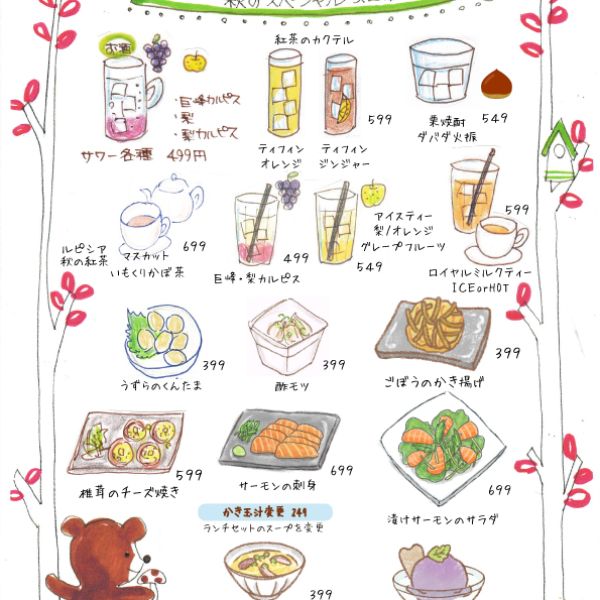 秋のスペシャル
お酒
・巨峰カルピス
・梨
・梨カルピス
サワー各種 499円
紅茶のカクテル
599
ティフィン
オレンジ
ティフィン
ジンジャー
549
栗焼酎
ダバダ火振
699
ルピシア
秋の紅茶
マスカット
いもくりかぼ茶
499
巨峰・梨カルピス
549
アイスティー
梨/オレンジ
グレープフルーツ
599
ロイヤルミルクティー
ICEorHOT
399
うずらのくんたま
399
酢モツ
399
ごぼうのかき揚げ
599
椎茸のチーズ焼き
699
サーモンの刺身
699
漬けサーモンのサラダ
かき玉汁変更 249
ランチセットのスープを変更
399